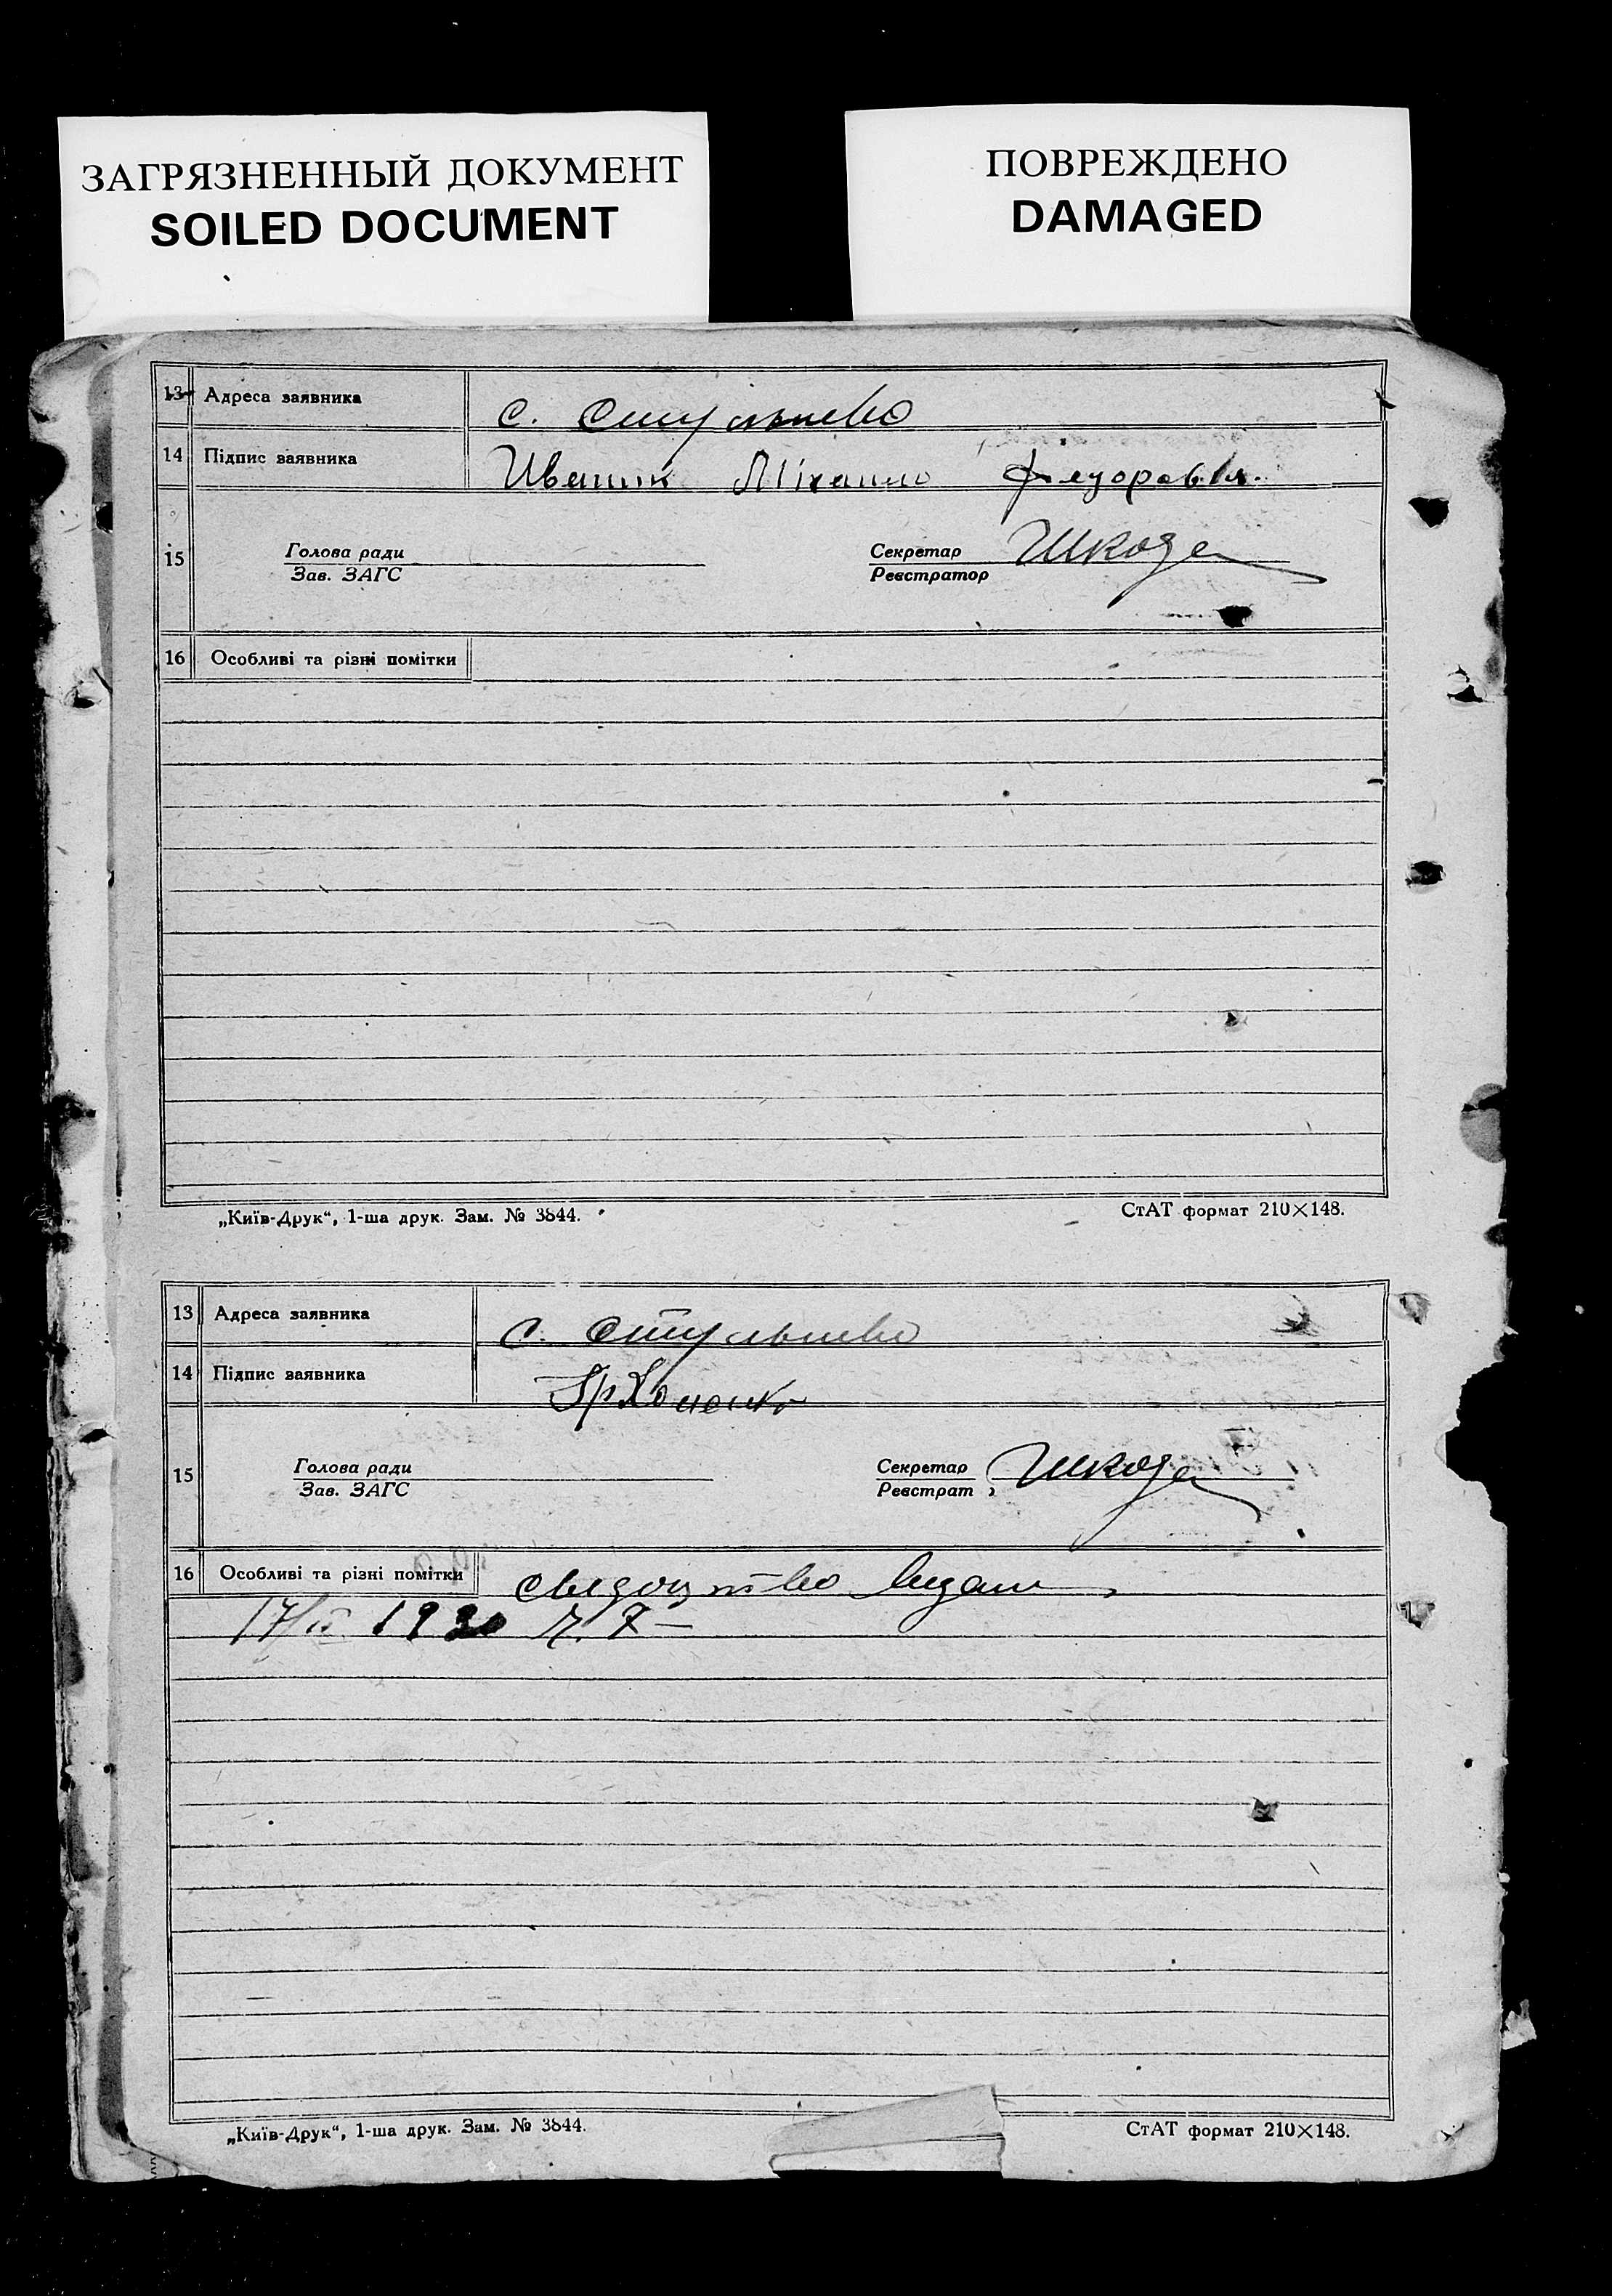 ЗАГРЯЗНЕННЫЙ ДОКУМЕНТ
SOILED DOCUMENT
ПОВРЕЖДЕНО
DAMAGED
13 Адреса заявника с.
14 Підпис заявника Міхаило
15 Голова ради Секретар Шкода
Зав. ЗАГС Реєстратор
16 Особливі та різні помітки
„Київ-Друк“, 1-ша друк. Зам. № 3844. СтАТ формат 210×148.
13 Адреса заявника с.
14 Підпис заявника
15 Голова ради Секретар Шкода
Зав. ЗАГС Реєстрат
16 Особливі та різні помітки
„Київ-Друк“, 1-ша друк. Зам. № 3844. СтАТ формат 210×148.